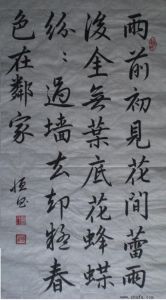 雨前初見花間蕾雨
後全無葉底花蜂蝶
紛〻過墙去却疑春
色在鄰家